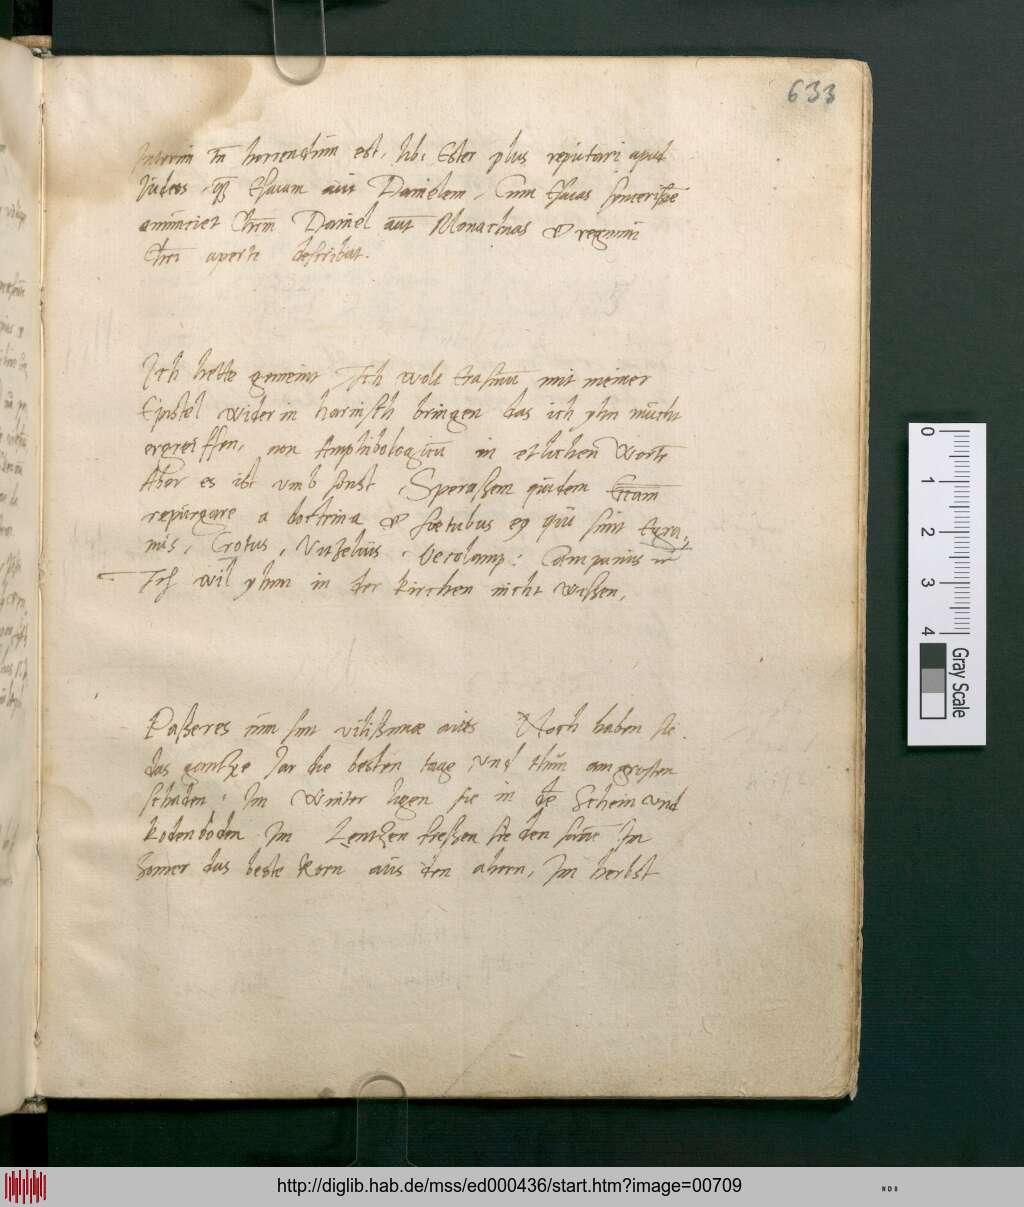 633
Interim tn horrendum est, lib: Ester plus reputari apud
Judeos, qz Esaiam aut Danielem, Cum Esaias sinceriss͞e
annunciet Chrm Daniel aut Monarchias & regnum
Chri aperte describat.
Ich hette gemeint Ich wolt Erasmu mit meiner
Epistel wider in harnisch bringen das ich yhn mucht
ergreiffen, non Amphibologicu in etlichen Worte
Aber es ist umb sonst. Speraßem quidem Eccam
repurgare a doctrina & foetubus eq qui sunt
mis, Crotus, Vitzelius, Oecolamp: Campanus
Ich wil yhm in der kirchen nicht wißen,
Paßeres cum sint vilißimae aues Noch haben sie
das gantze Jar die besten tage und thun am grosten
schaden: Im Winter ligen sie in de Schein und
kodenboden Im Lentzen freßen sie den Im
Somer das beste Korn aus den ahern, Im herbst
0 1 2 3 4
Gray Scale
http://diglib.hab.de/mss/ed000436/start.htm?image=00709